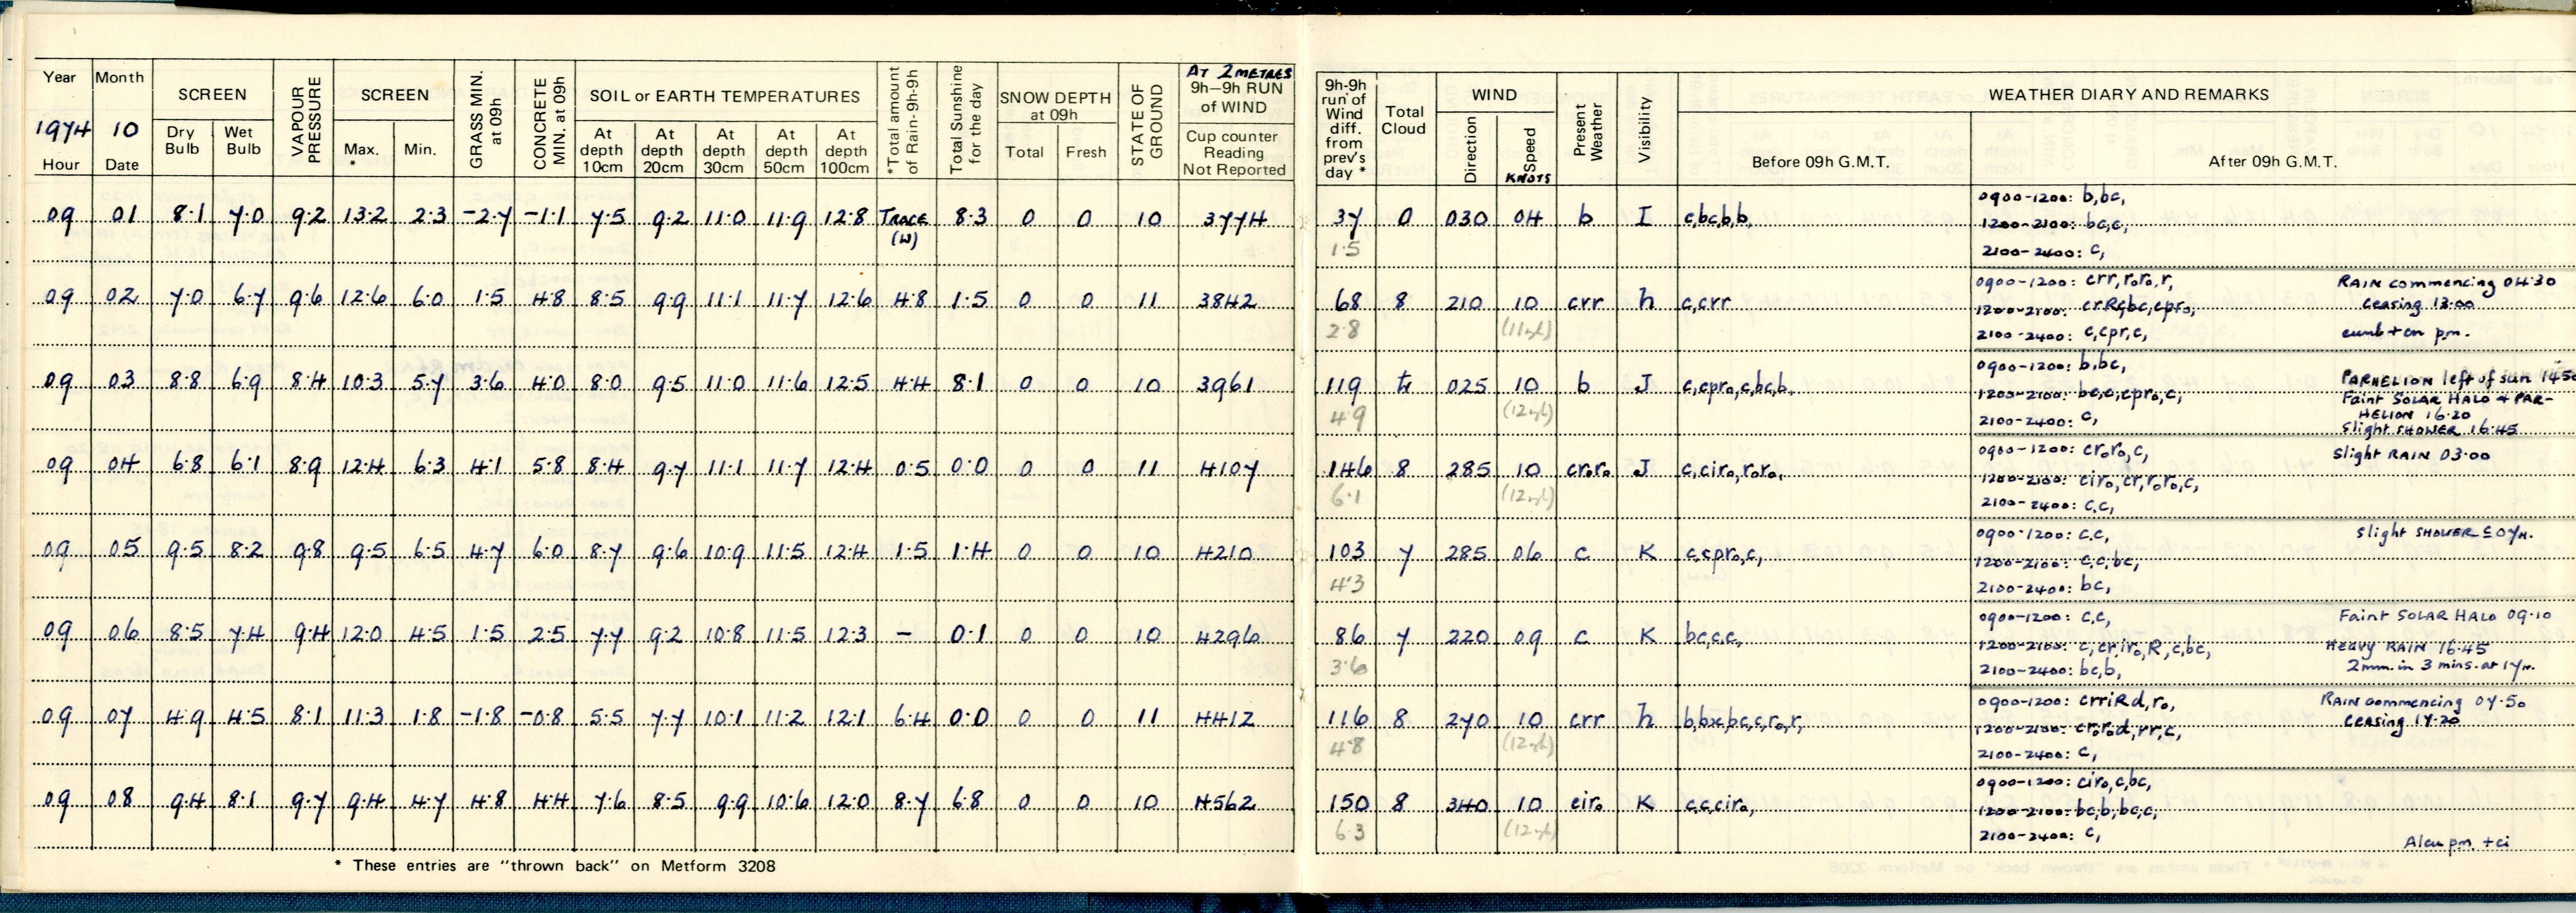 Year Month SCREEN VAPOUR PRESSURE SCREEN GRASS MIN. at 09h CONCRETE MIN. at 09h SOIL or EARTH TEMPERATURES *Total amount of Rain-9h-9h Total Sunshine for the day SNOW DEPTH at 09h STATE OF GROUND AT 2 METRES 9h-9h RUN of WIND
1974 10 Dry Bulb Wet Bulb Max. * Min. At depth 10cm At depth 20cm At depth 30cm At depth 50cm At depth 100cm Total Fresh Cup counter Reading Not Reported
Hour Date
09 01 8.1 7.0 9.2 13.2 2.3 -2.7 -1.1 7.5 9.2 11.0 11.9 12.8 TRACE (W) 8.3 0 0 10 3774
09 02 7.0 6.7 9.6 12.6 6.0 1.5 4.8 8.5 9.9 11.1 11.7 12.6 4.8 1.5 0 0 11 3842
09 03 8.8 6.9 8.4 10.3 5.7 3.6 4.0 8.0 9.5 11.0 11.6 12.5 4.4 8.1 0 0 10 3961
09 04 6.8 6.1 8.9 12.4 6.3 4.1 5.8 8.4 9.7 11.1 11.7 12.4 0.5 0.0 0 0 11 4107
09 05 9.5 8.2 9.8 9.5 6.5 4.7 6.0 8.7 9.6 10.9 11.5 12.4 1.5 1.4 0 0 10 4210
09 06 8.5 7.4 9.4 12.0 4.5 1.5 2.5 7.7 9.2 10.8 11.5 12.3 - 0.1 0 0 10 4296
09 07 4.9 4.5 8.1 11.3 1.8 -1.8 -0.8 5.5 7.7 10.1 11.2 12.1 6.4 0.0 0 0 11 4412
09 08 9.4 8.1 9.7 9.4 4.7 4.8 4.4 7.6 8.5 9.9 10.6 12.0 8.7 6.8 0 0 10 4562
* These entries are "thrown back" on Metform 3208
9h-9h run of Wind diff. from prev's day * Total Cloud WIND Present Weather Visibility WEATHER DIARY AND REMARKS
Direction Speed KNOTS Before 09h G.M.T. After 09h G.M.T.
0900-1200: b,bc,
37 0 030 04 b I c,bc,b,b, 1200-2100: bc,c,
1.5 2100-2400: c,
0900-1200: crr,roro,r, RAIN commencing 04.30
68 8 210 10 crr h c,crr 1200-2100: crR,c,bc,cpro, ceasing 13.00
2.8 2100-2400: c,cpr,c, cumb+cn pm.
0900-1200: b,bc,
119 025 10 b J c,cpro,c,bc,b, PARHELION left of sun
4.9 1200-2100: bc,c,cpro,c, Faint SOLAR HALO + PAR-
HELION 16.20
2100-2400: c, Slight SHOWER 16.45
0900-1200: croro,c, Slight RAIN 03.00
146 8 285 10 croro J c,ciro,roro, 1200-2100: ciro,cr,roro,c,
6.1 2100-2400: c,c,
0900-1200: c,c, Slight SHOWER ≤07H.
103 7 285 06 c K c,cpro,c, 1200-2100: c,c,bc,
4.3 2100-2400: bc,
0900-1200: c,c, Faint SOLAR HALO 09.10
86 7 220 09 c K bc,c,c, 1200-2100: c,criro,R,c,bc, Heavy RAIN 16.45
3.6 2100-2400: bc,b, 2mm. in 3 mins. at 17H.
0900-1200: crriRd,ro, RAIN commencing 07.50
116 8 270 10 crr h b,bx,bc,c,ro,r, 1200-2100: crorod,rr,c, Ceasing 17.20
4.8 2100-2400: c,
0900-1200: ciro,c,bc,
150 8 340 10 ciro K c,c,ciro, 1200-2100: bc,b,bc,c,
6.3 2100-2400: c, Alcu pm. +ci